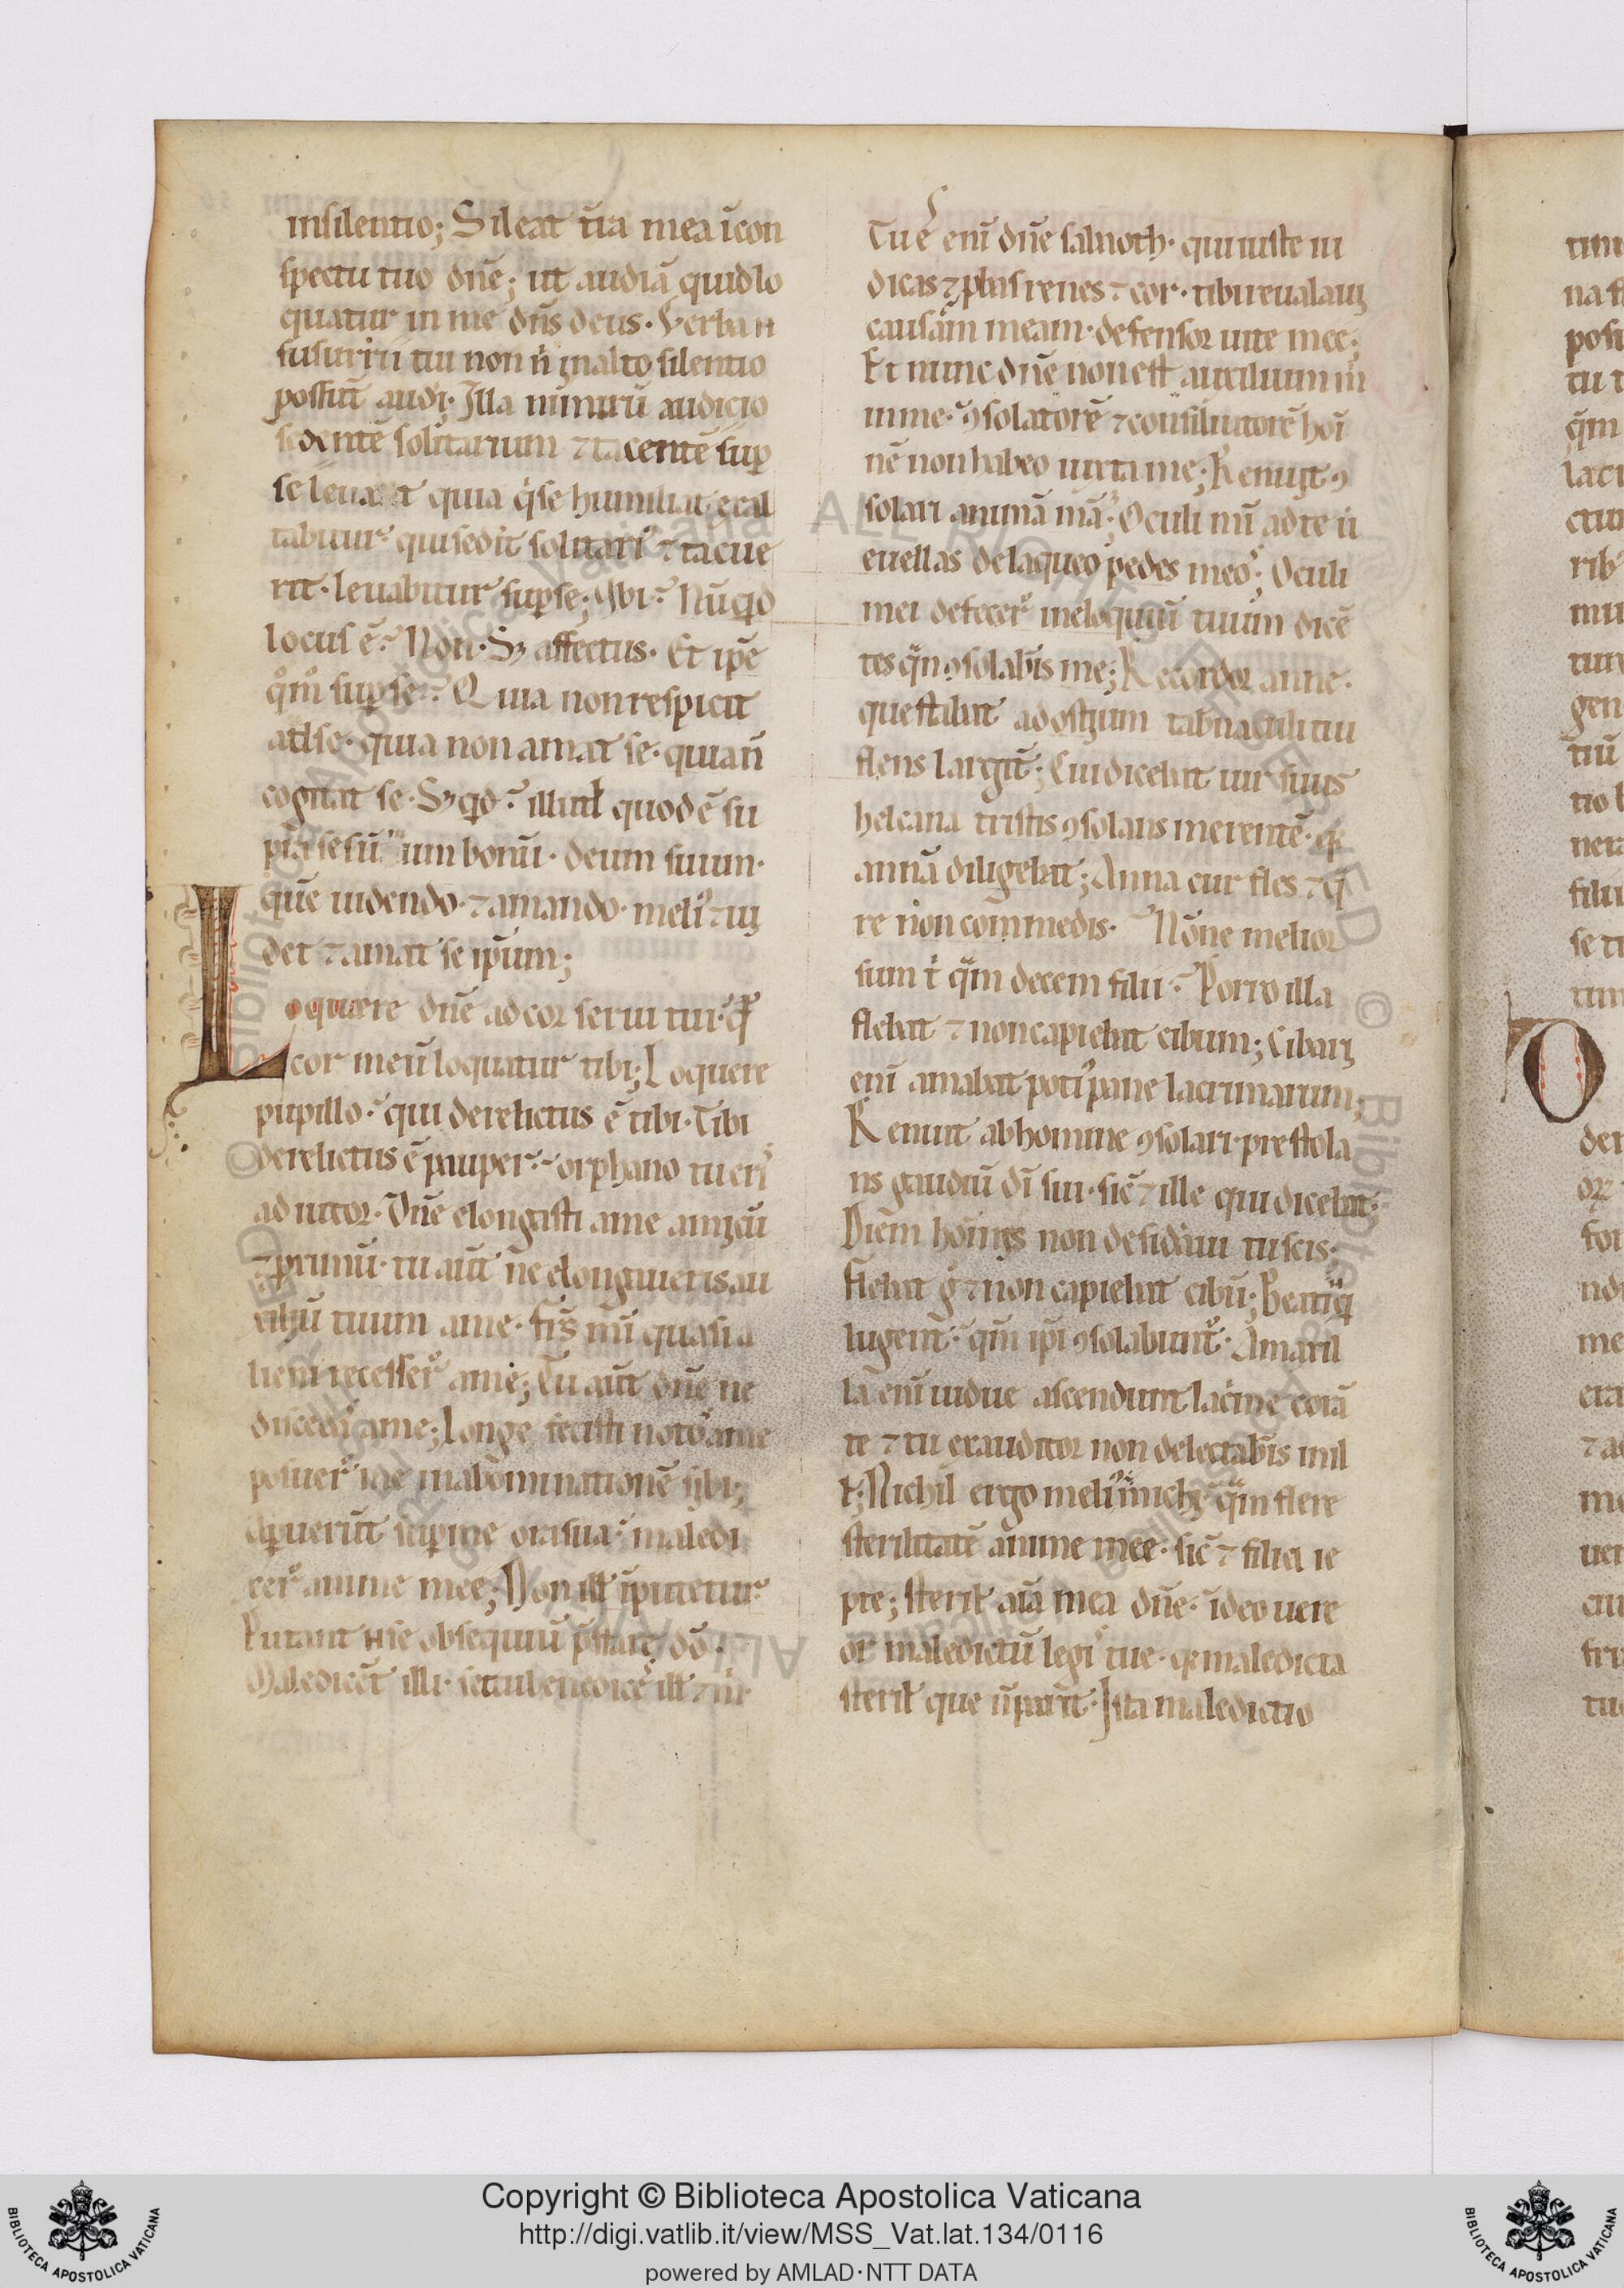 insilentio; Sileat uı̃a mea ĩcon
spectu tuo dñe; ut audiã quid lo
quatur in me dñs deus. Verba n̄
susurrii tui non nͥ in alto silentio
possũt audiri. Illa nimirũ audicio
sedentẽ solitarium ⁊ tacentẽ suꝑ
se leuauit quia qͥ se humiliat exal
tabitur quisedit solitariꝰ ⁊ tacue
rit. leuabitur suꝑ se; Vbi? Nũqͥd
locus ẽ? Non. Sꝫ affectus. Et ip̃e
qͦmͦ suꝑ se? Quia non respicit
ad se. quia non amat se. quia ñ
cogitat se. Sꝫ qͥd? illud quod ẽ su
pra se sũmum bonũ. deum suum.
quẽ uidendo. ⁊ amando. meliꝰ ⁊ ui
det ⁊ amat se ip̃um;
Loquere dñe ad cor serui tui. qͣ
cor meũ loquatur tibi; Loquere
pupillo. qui derelictus ẽ tibi. Tibi
derelictus ẽ pauper. orphano tu eriˢ
adiutor. Dñe elongasti a me amicũ
⁊ primũ. tu aũt ne elongaueris au
xiliũ tuum a me. fr̃s mĩ quasi a
lieni recesserͭ a me; Tu aũt dñe ne
discedas a me; Longe fecisti notoˢ a me
posuerͭ me in abominationẽ sibi;
Aperuerũt suꝑ me ora sua. maledi
xerͭ anime mee; Non ill̵ ĩputetur
Putant se obsequiũ p̃stare dõ.
Maledicẽt illi. sed tu benediceˢ ill̵ ⁊ m̃.
Tu eˢ enĩ dñe sabaoth. qui iuste iu
dicas ⁊ ꝓbas renes ⁊ cor. tibi reuelaui
causam meam. defensor uite mee;
Et nunc dñe non est auxilium in
in me. ꝯsolatorẽ ⁊ consiliatorẽ hoĩ
nẽ non habeo iuxta me; Renuit ꝯ
solari animã mã; Oculi mĩ ad te ũ
euellas de laqueo pedes meoˢ; Oculi
mei defecerͭ in eloquiũ tuum dicẽ
tes qñ ꝯsolab̃is me; Recordor anne.
que stabat ad ostium tab̃naculi tui
flens largit̃; Cui dicebat uir suus
helcana tristis ꝯsolans merentẽ. qͥ
annã diligebat; Anna cur fles ⁊ qͣ
re non commedis. Nõne melior
sum tͥ qͣm decem filii? Porro illa
flebat ⁊ non capiebat cibum; Cibari
enĩ amabat potiꝰ pane lacrimarum;
Renuit ab homine ꝯsolari. prestola
ns gaudiũ dĩ sui. sic̃ ⁊ ille qui dicebat;
Diem hoĩnis non desid̃aui tu scis;
Flebat gͦ ⁊ non capiebat cibũ; Beati qͥ
lugent. qm̃ ip̃i ꝯsolabunt̃. A maxil
la enĩ uidue ascendunt lacͥme corã
te ⁊ tu exauditor non delectab̃is in il
l̵; Nichil ergo meliꝰ michi qͣm flere
sterilitatẽ anime mee. sic̃ ⁊ filia ie
pte; Steril̵ aĩa mea dñe. ĩdeo uere
or maledictũ legiˢ tue. qͥ maledicta
steril̵ que ñ parit. Ista maledictio
Copyright © Biblioteca Apostolica Vaticana
http://digi.vatlib.it/view/MSS_Vat.lat.134/0116
powered by AMLAD·NTT DATA